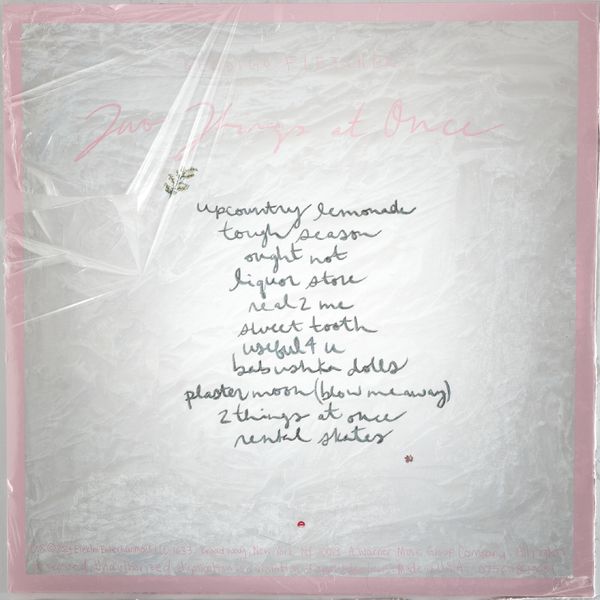 Two Things at Once
upcountry lemonade
tough season
ought not
liquor store
real 2 me
sweet tooth
useful 4 u
babushka dolls
plaster moon (blow me away)
2 things at once
rental skates
Entertainment LLC 1633 Broadway, New York, NY 10019 A Warner Music Group Company. All rights
reserved. Unauthorized duplication is a violation of applicable laws. Made in U.S.A.